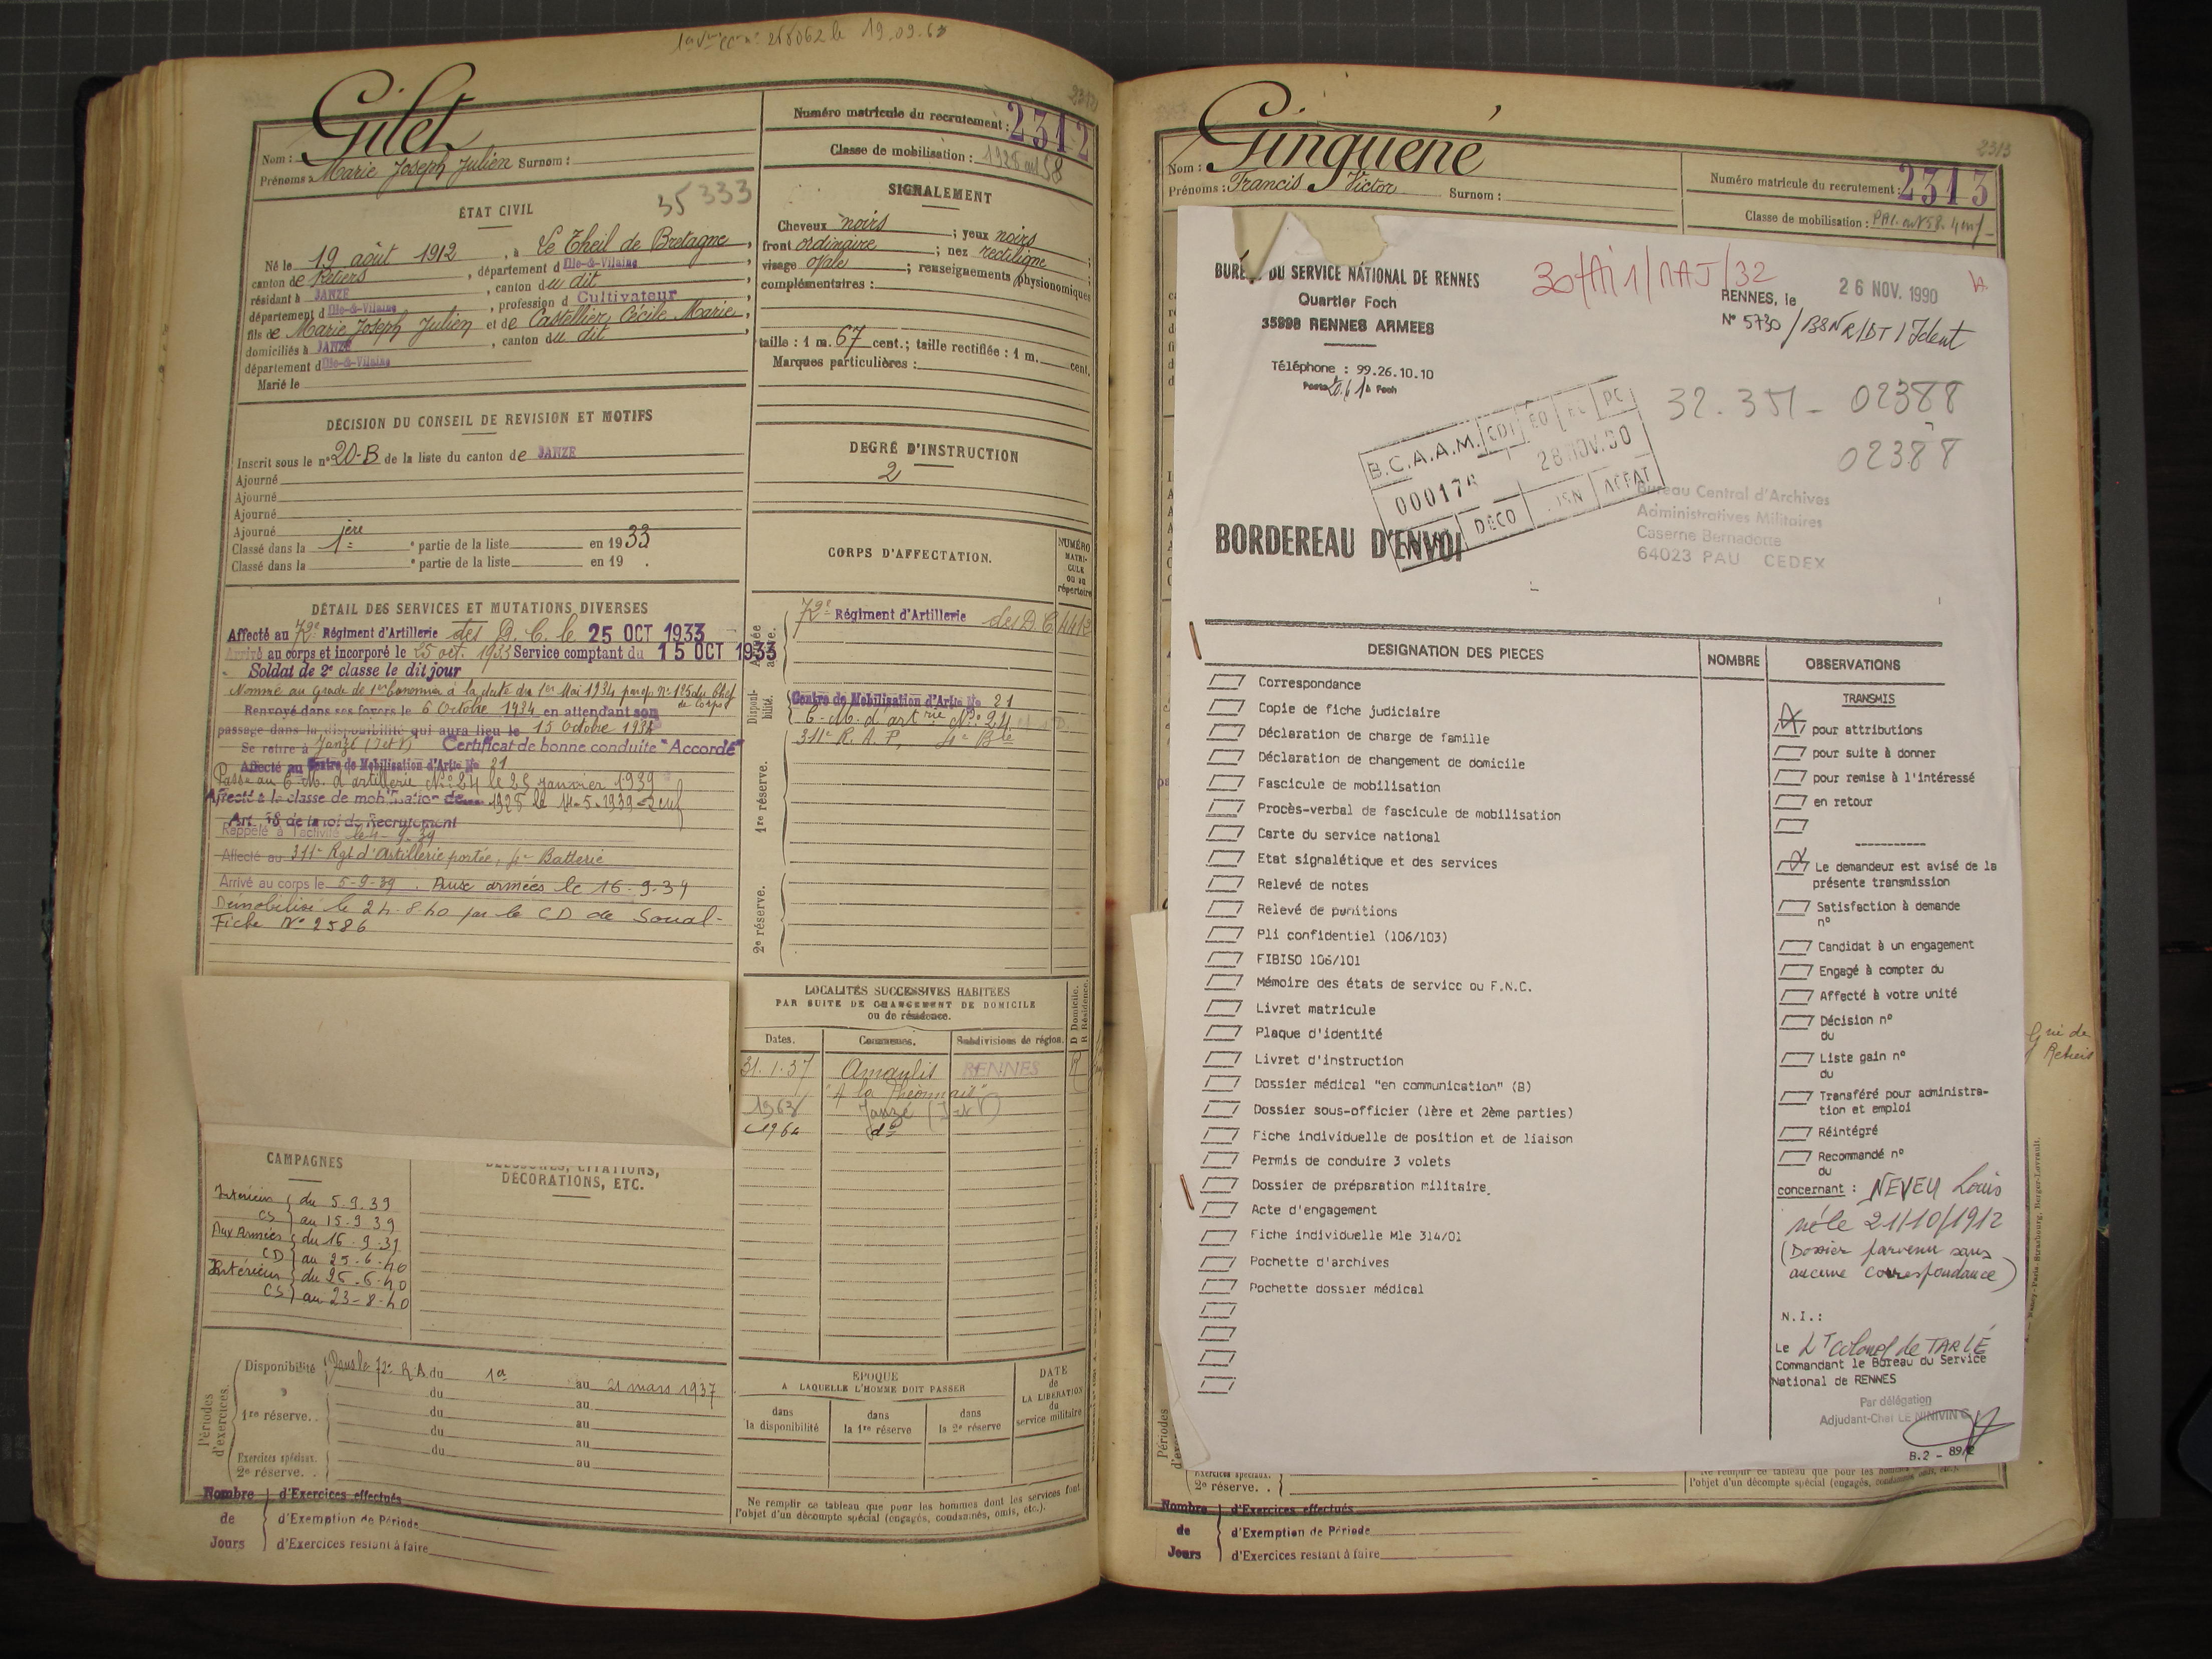 19.09.63
Gilet
Nom :
Prénoms : Marie Joseph Julien Surnom :
35333
2312
Numéro matricule du recrutement : 2312
Classe de mobilisation : 1928 art 58
ÉTAT CIVIL
Né le 19 août 1912, à Le Theil de Bretagne,
canton de Retiers, département d Ille-&-Vilaine
résidant à JANZÉ, canton du dit
département d Ille-&-Vilaine, profession d Cultivateur
fils de Marie Joseph Julien et de Castellier Cécile Marie,
domiciliés à JANZÉ, canton du dit
département d Ille-&-Vilaine
Marié le
SIGNALEMENT
Cheveux noirs ; yeux noirs
front ordinaire ; nez rectiligne ;
visage ovale ; renseignements physionomiques
complémentaires :
taille : 1 m. 67 cent.; taille rectifiée : 1 m. cent.
Marques particulières :
DÉCISION DU CONSEIL DE REVISION ET MOTIFS
Inscrit sous le n° 20-B de la liste du canton de JANZÉ
Ajourné
Ajourné
Ajourné
Ajourné
Classé dans la 1ère partie de la liste en 1933
Classé dans la partie de la liste en 19 .
DEGRÉ D'INSTRUCTION
2
CORPS D'AFFECTATION.
NUMÉRO MATRICULE ou au répertoire
Armée active.
72e Régiment d'Artillerie des D.C. 4412
Disponibilité.
Centre de Mobilisation d'Artie No 21
C. M. d'artrie No 24
311e R. A. P, 4e Bie
1re réserve.
2e réserve.
DÉTAIL DES SERVICES ET MUTATIONS DIVERSES
Affecté au 72e Régiment d'Artillerie des D. C. le 25 OCT 1933
Arrivé au corps et incorporé le 25 oct. 1933 Service comptant du 15 OCT 1933
Soldat de 2e classe le dit jour
Nommé au grade de 1er Canonnier à la date du 1er Mai 1934 par o/ n° 125 du Chef de Corps
Renvoyé dans ses foyers le 6 Octobre 1934 en attendant son
passage dans la disponibilité qui aura lieu le 15 Octobre 1934
Se retire à Janzé (I et V) Certificat de bonne conduite "Accordé"
Affecté au Centre de Mobilisation d'Artie No 21
Passé au C. M. d'artillerie No 24 le 25 janvier 1939
Affecté à la classe de mobilisation de 1928 le 14-5-1939
Art. 58 de la loi de Recrutement
Rappelé à l'activité le 4-9-39
Affecté au 311e Rgt d'Artillerie portée, 4e Batterie
Arrivé au corps le 5-9-39. Aux armées le 16-9-39
Démobilisé le 24.8.40 par le CD de Soual -
Fiche No 2586
LOCALITÉS SUCCESSIVES HABITÉES
PAR SUITE DE CHANGEMENT DE DOMICILE
ou de résidence.
Dates. Communes. Subdivisions de région. D Domicile. R Résidence.
31.1.37 Amanlis RENNES R
1963 Janzé (I et V)
1964 do
CAMPAGNES
BLESSURES, CITATIONS,
DÉCORATIONS, ETC.
Intérieur du 5.9.39
CS au 15.9.39
Aux Armées du 16.9.39
CD au 25.6.40
Intérieur du 26.6.40
CS au 23-8-40
Périodes d'exercices.
Disponibilité Dans le 72e R.A du 1er au 21 mars 1937
du au
1re réserve. . du au
du au
du au
Exercices spéciaux.
2e réserve. . au
EPOQUE
A LAQUELLE L'HOMME DOIT PASSER
dans la disponibilité
dans la 1re réserve
dans la 2e réserve
DATE de LA LIBERATION du service militaire
Ne remplir ce tableau que pour les hommes dont les services font
l'objet d'un décompte spécial (engagés, condamnés, omis, etc.).
Nombre de Jours
d'Exercices effectués
d'Exemption de Période
d'Exercices restant à faire
Ginguené
2313
Nom :
Prénoms : Francis Victor Surnom :
Numéro matricule du recrutement : 2313
Classe de mobilisation :
BUREAU DU SERVICE NATIONAL DE RENNES
Quartier Foch
35998 RENNES ARMEES
Téléphone : 99.26.10.10
RENNES, le 26 NOV. 1990
N° 5730 / BSNR/DT / Ident
32.351 - 02388
02388
B.C.A.A.M. CDT EO EL PC
28 NOV. 90
DECO JSN
Bureau Central d'Archives
Administratives Militaires
Caserne Bernadotte
64023 PAU CEDEX
BORDEREAU D'ENVOI
DESIGNATION DES PIECES
NOMBRE
OBSERVATIONS
Correspondance
Copie de fiche judiciaire
Déclaration de charge de famille
Déclaration de changement de domicile
Fascicule de mobilisation
Procès-verbal de fascicule de mobilisation
Carte du service national
Etat signalétique et des services
Relevé de notes
Relevé de punitions
Pli confidentiel (106/103)
FIBISO 106/101
Mémoire des états de service ou F.N.C.
Livret matricule
Plaque d'identité
Livret d'instruction
Dossier médical "en communication" (B)
Dossier sous-officier (1ère et 2ème parties)
Fiche individuelle de position et de liaison
Permis de conduire 3 volets
Dossier de préparation militaire
Acte d'engagement
Fiche individuelle Mle 314/01
Pochette d'archives
Pochette dossier médical
TRANSMIS
pour attributions
pour suite à donner
pour remise à l'intéressé
en retour
Le demandeur est avisé de la
présente transmission
Satisfaction à demande
n°
Candidat à un engagement
Engagé à compter du
Affecté à votre unité
Décision n°
du
Liste gain n°
du
Transféré pour administra-
tion et emploi
Réintégré
Recommandé n°
du
concernant : NEVEU Louis
né le 21/10/1912
(Dossier parvenu sans
aucune correspondance)
N.I.:
Le Lt Colonel de TARLÉ
Commandant le Bureau du Service
National de RENNES
Par délégation
Adjudant-Chef LE NINIVIN G
B.2 - 89/2
Périodes
Exercices spéciaux.
2e réserve. .
Ne remplir ce tableau que pour les hommes
l'objet d'un décompte spécial (engagés, condamnés, omis, etc.).
Nombre de Jours
d'Exercices effectués
d'Exemption de Période
d'Exercices restant à faire